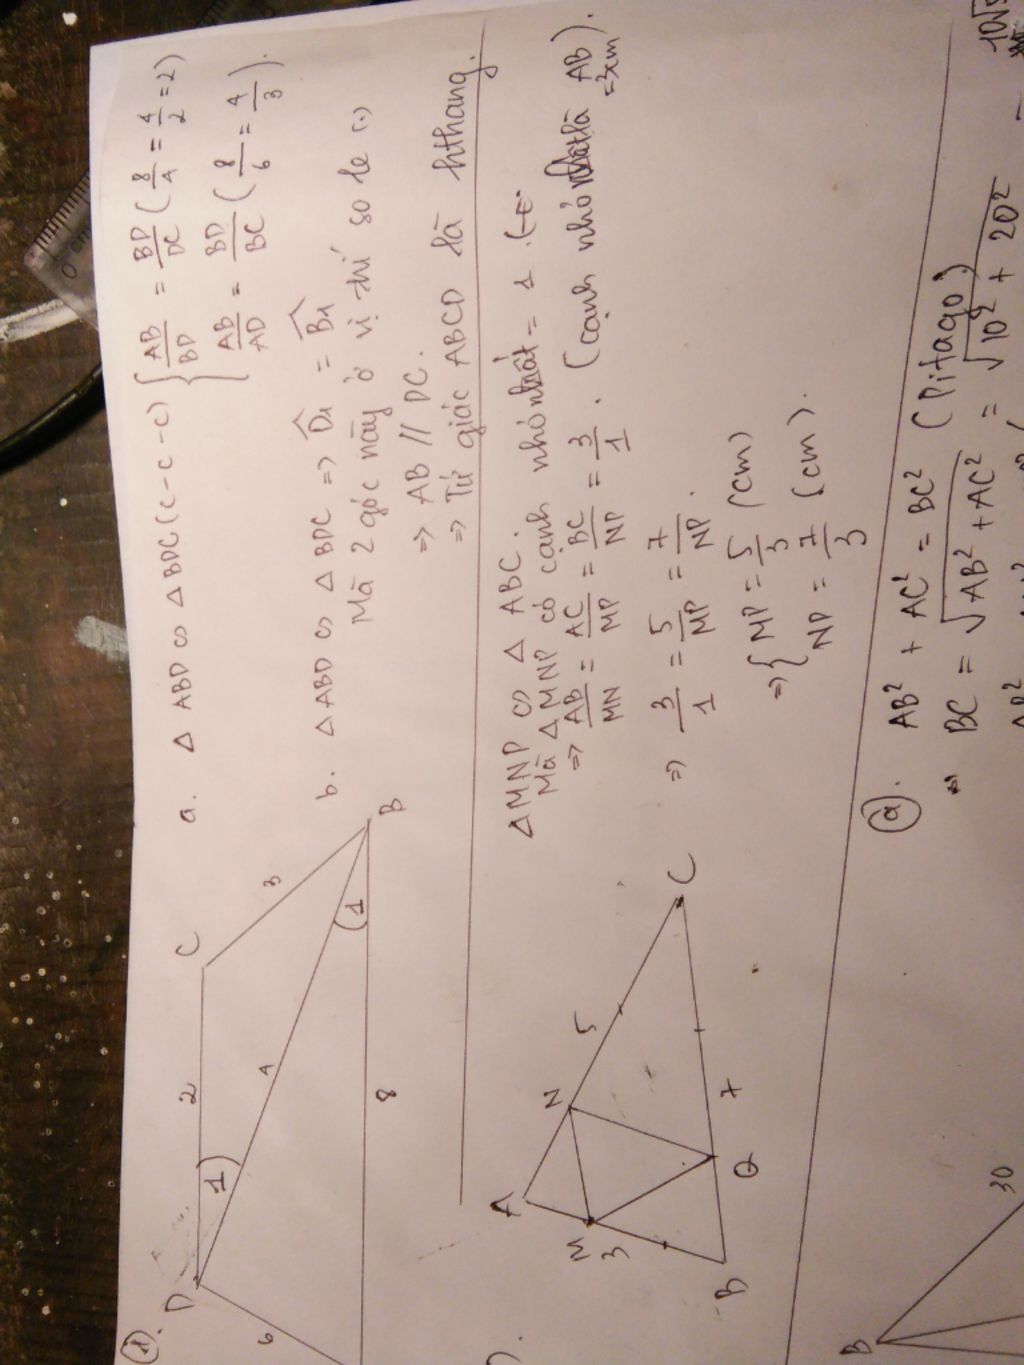 1.
D
C
B
2
3
4
6
8
1
1
a. △ ABD ∽ △ BDC (c-c-c) { AB/BD = BD/DC ( 8/4 = 4/2 = 2)
AB/AD = BD/BC ( 8/6 = 4/3 ).
b. △ ABD ∽ △ BDC => D̂1 = B̂1
Mà 2 góc này ở vị trí so le (.)
=> AB // DC.
=> Tứ giác ABCD là hthang.
A
M
N
B
Q
C
3
5
7
△MNP ∽ △ ABC.
Mà △ MNP có cạnh nhỏ nhất = 1.
=> AB/MN = AC/MP = BC/NP = 3/1 . (cạnh nhỏ nhất là AB = 3cm).
=> 3/1 = 5/MP = 7/NP.
=> { MP = 5/3 (cm)
NP = 7/3 (cm).
B
30
a. AB² + AC² = BC² (Pitago)
BC = √AB² + AC² = √10² + 20²